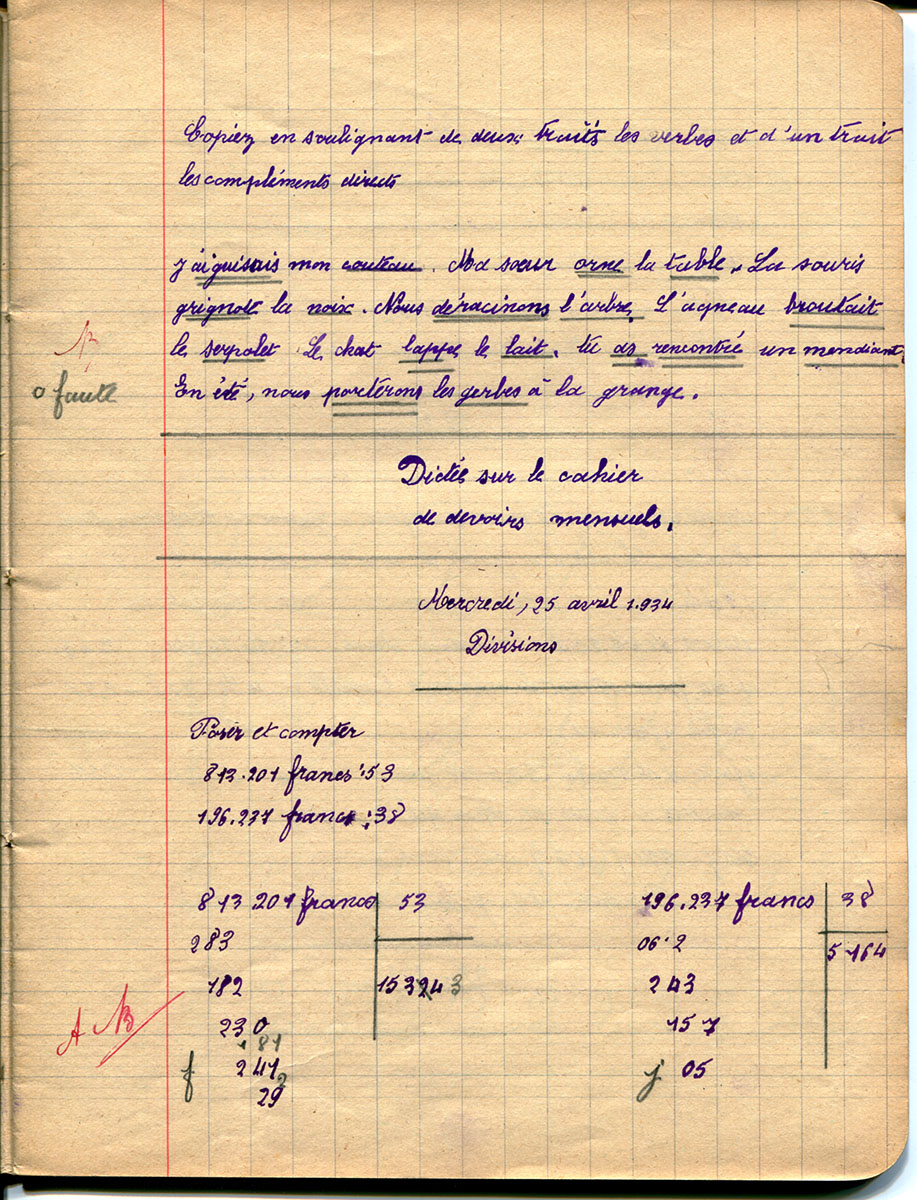 Copiez en soulignant de deux traits les verbes et d'un trait
les compléments directs
J'aiguisais mon couteau. Ma sœur orne la table. La souris
grignote la noix. Nous déracinons l'arbre. L'agneau broutait
le serpolet. Le chat lappe le lait. tu as rencontré un mendiant.
B
0 faute
En été, nous porterons les gerbes à la grange.
Dictée sur le cahier
de devoirs mensuels.
Mercredi, 25 avril 1.934
Divisions
Poser et compter
813.201 francs : 53
196.237 francs : 38
813 201 francs 53
283
182 15324 3
230
181
241
2
29
A B
f
196.237 francs 38
06.2 5 164
243
157
j 05